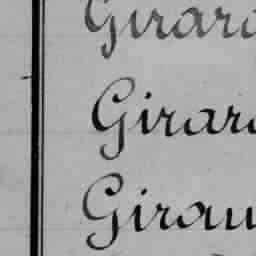 Girard
Girard
Girau